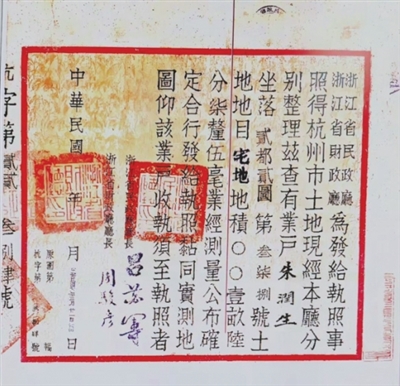 浙江省民政廳
浙江省財政廳
為發給執照事
照得杭州市土地現經本廳分
別整理茲查有業戶朱潤生
坐落貳都貳圖第叁柒捌號土
地地目宅地地積〇〇壹畝陸
分柒釐伍毫業經測量公布確
定合行發給執照黏同實測地
圖仰該業戶收執須至執照者
浙江 廳長呂苾籌
浙江 廳長周駿彥
中華民國 年 月 日
杭字第貳貳叁捌肆號